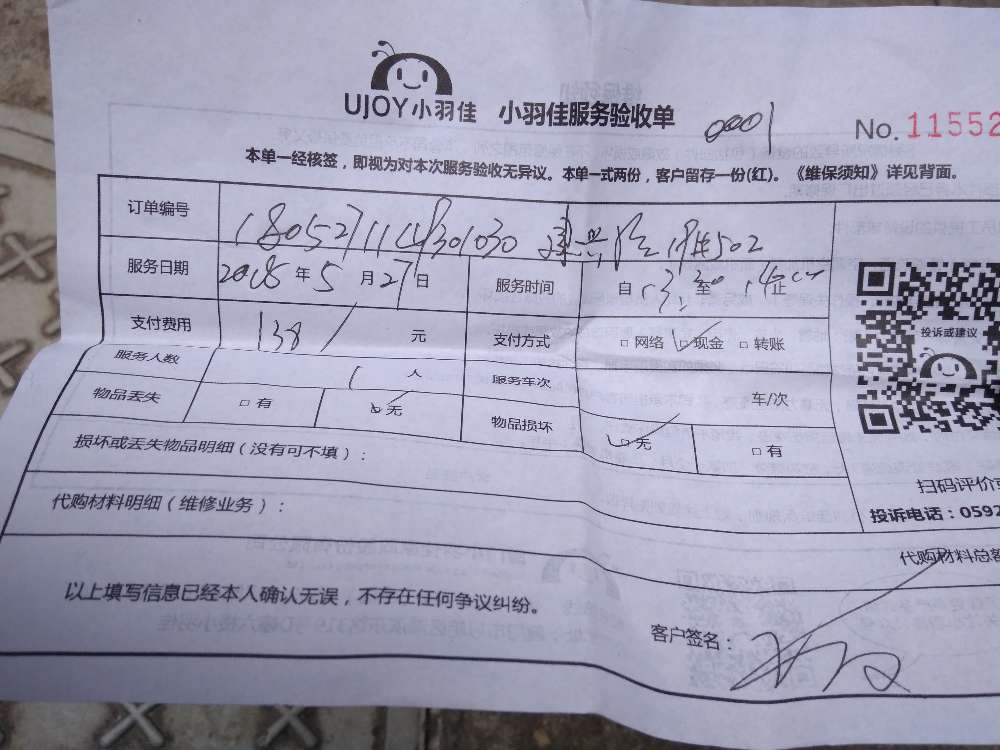 UJOY小羽佳 小羽佳服务验收单 0001
No. 11552
本单一经核签，即视为对本次服务验收无异议。本单一式两份，客户留存一份(红)。《维保须知》详见背面。
订单编号 502
服务日期 2018 年 5 月 27 日 服务时间 自 13:30 至 止
支付费用 138 元 支付方式 □ 网络 □ 现金 □ 转账
投诉或建议
服务人数 1 人 服务车次 车/次
物品丢失 □ 有 □ 无 物品损坏 □ 无 □ 有
损坏或丢失物品明细（没有可不填）：
扫码评价
代购材料明细（维修业务）：
投诉电话：0592
代购材料总
以上填写信息已经本人确认无误，不存在任何争议纠纷。
客户签名：